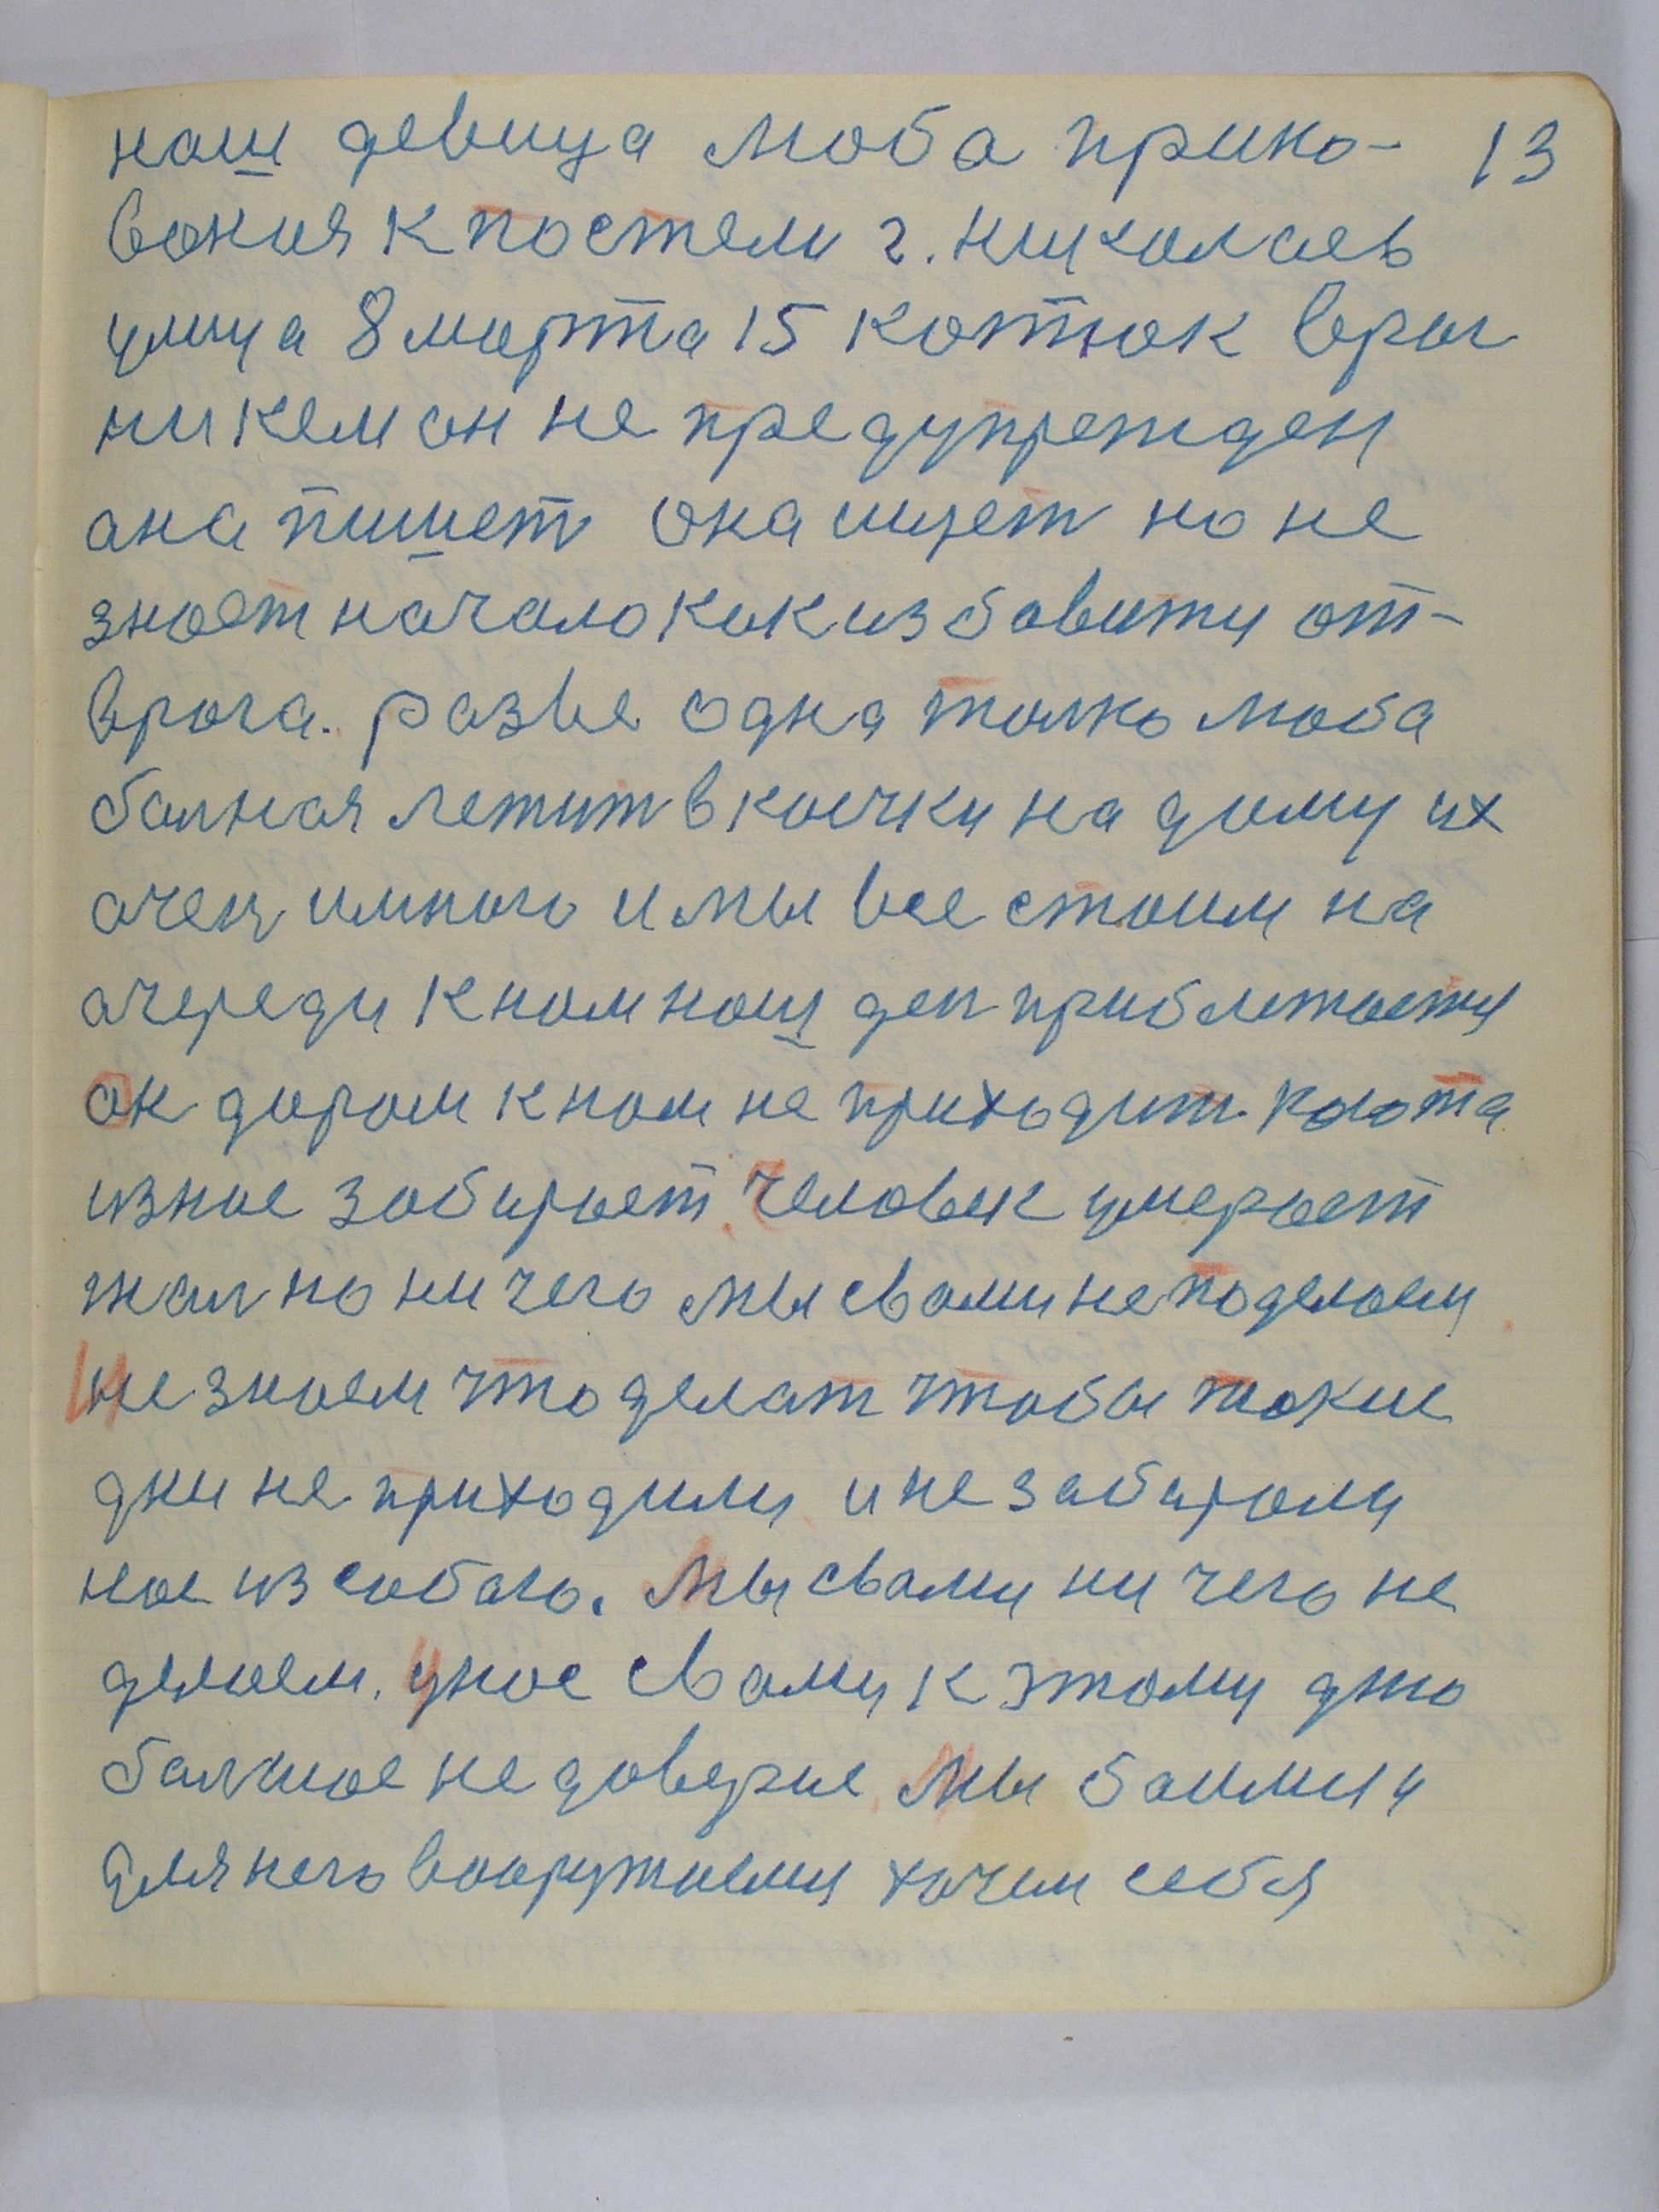 наш девица люба прико- 13
вания к постели г. николаев
улица 8 марта 15 котюк враг
ни кем он не предупрежден
она пишет она ищет но не
знает начало как избавити от-
врага. разве одна толко люба
балная лежит в коечки на дому их
очен имного и мы все стоим на
очереди к нам наш ден приближается
он даром к нам не приходит. кого та
изнас забирает. человек умерает
жал но ни чего мы свами не поделаем
не знаем что делат чтобы такие
дни не приходили и не забирали
нас из собаю. Мы свами ни чего не
делаем. унас свами к этому дню
балшое не доверие Мы боимся
Для него вооружаемся хочем себя